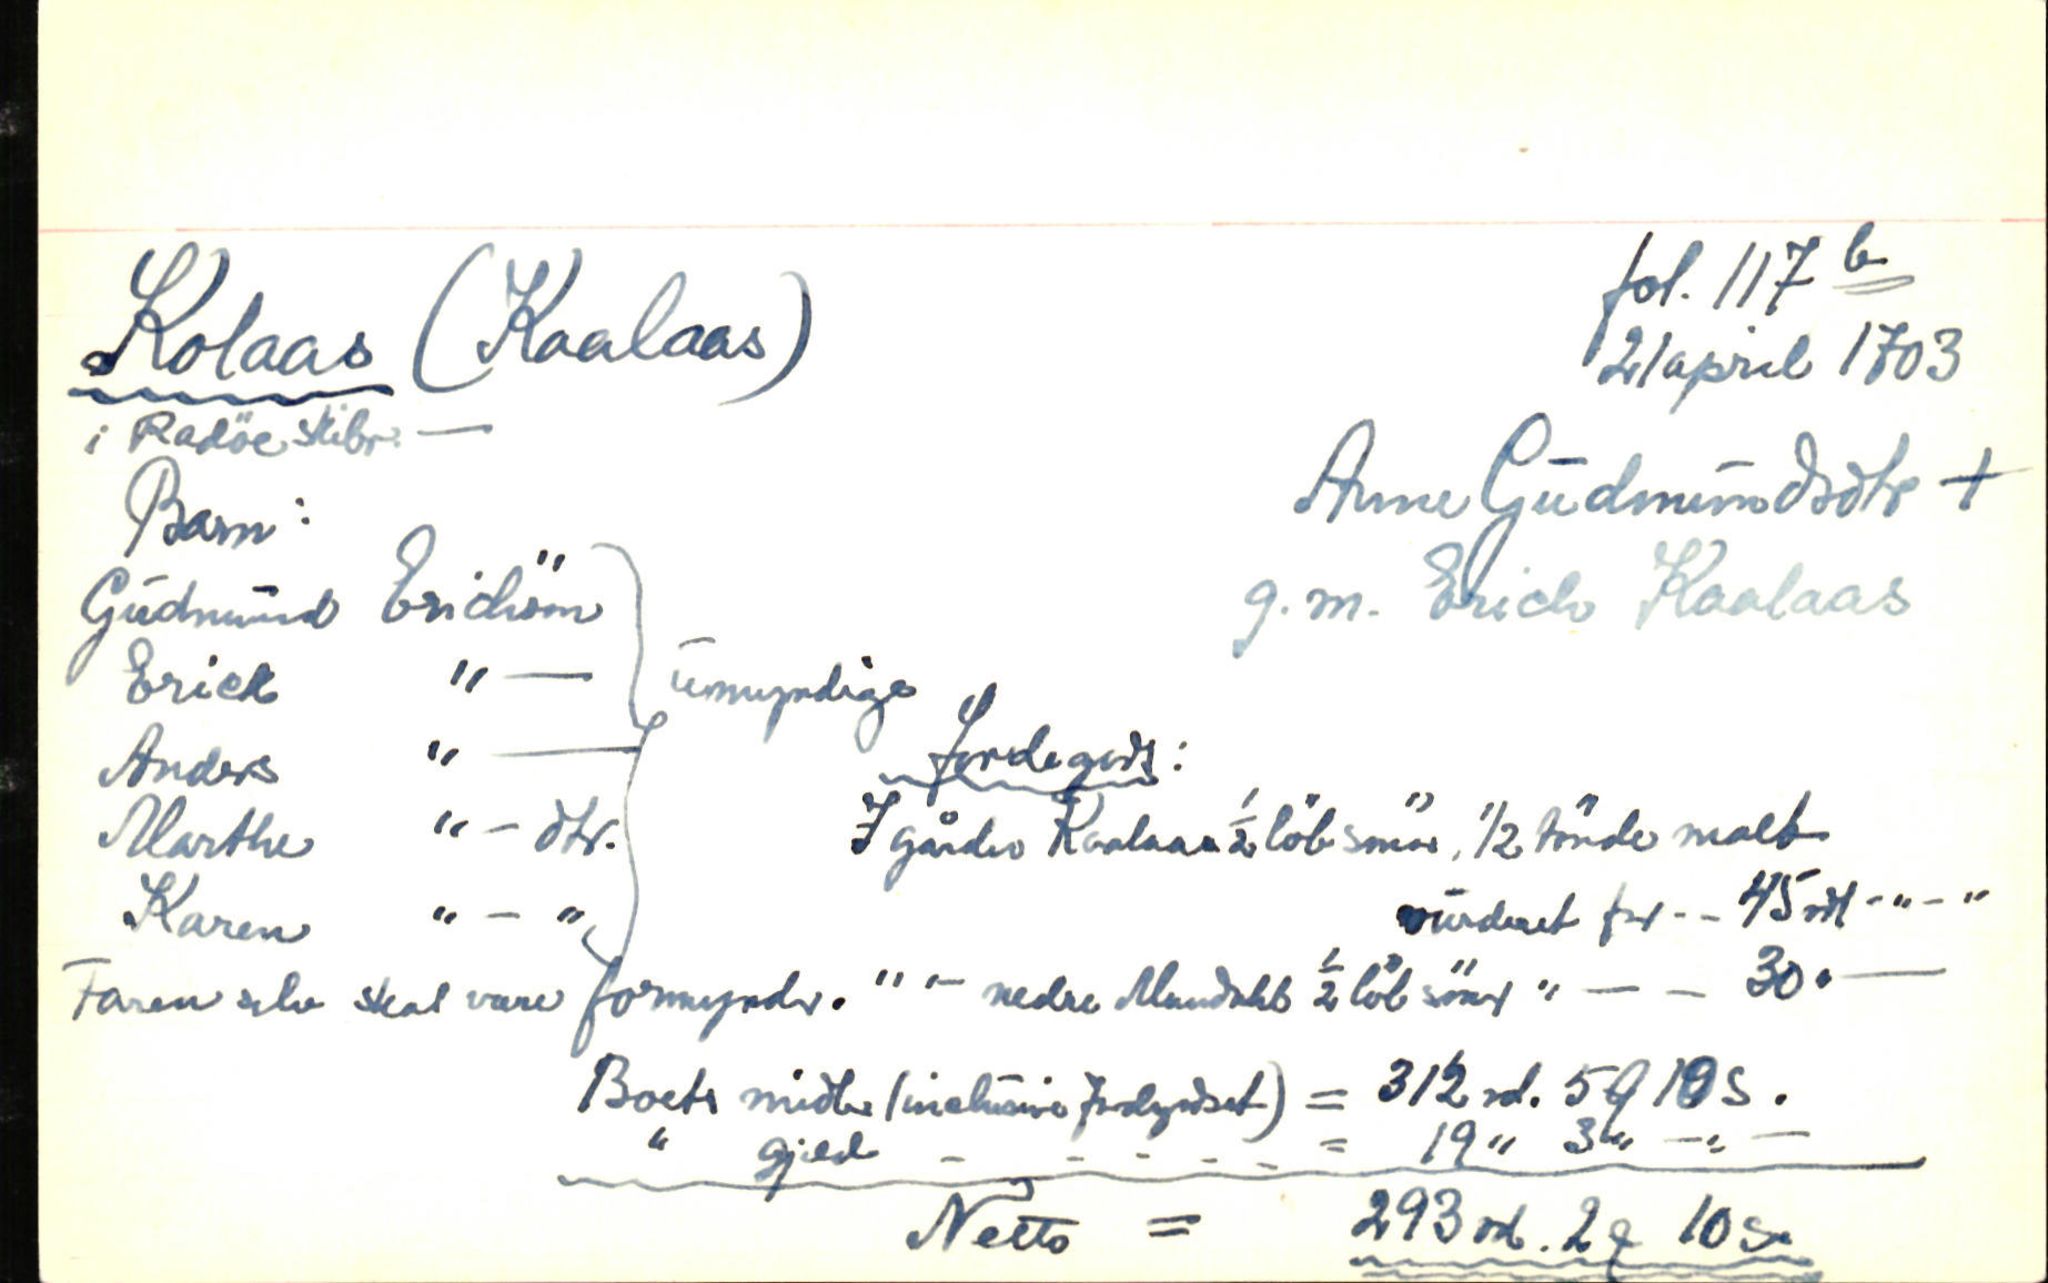 Kolaas (Kaalaas)
fol. 117 b
21 april 1703
i Radöe skibr: —
Anne Gudmundsdtr +
g.m. Erich Kaalaas
Barn:
Gudmund Erichsön
Erick " —
Anders " —
Marthe " — dtr.
Karen " — "
umyndige
Jordegods:
I gården Kaalaas 1/2 löb smör, 1/2 tönde malt
vurderet for -- 45 rdl - " - "
Faren selv skal være formynder. " " - nedre 1/2 löb smör " — — 30 " —
Boets midler (inclusive Jordegodset) = 312 rd. 5 q 10 s.
" gjeld - - - - - - = 19 " 3 " — " —
Netto = 293 rd. 2 q 10 s.